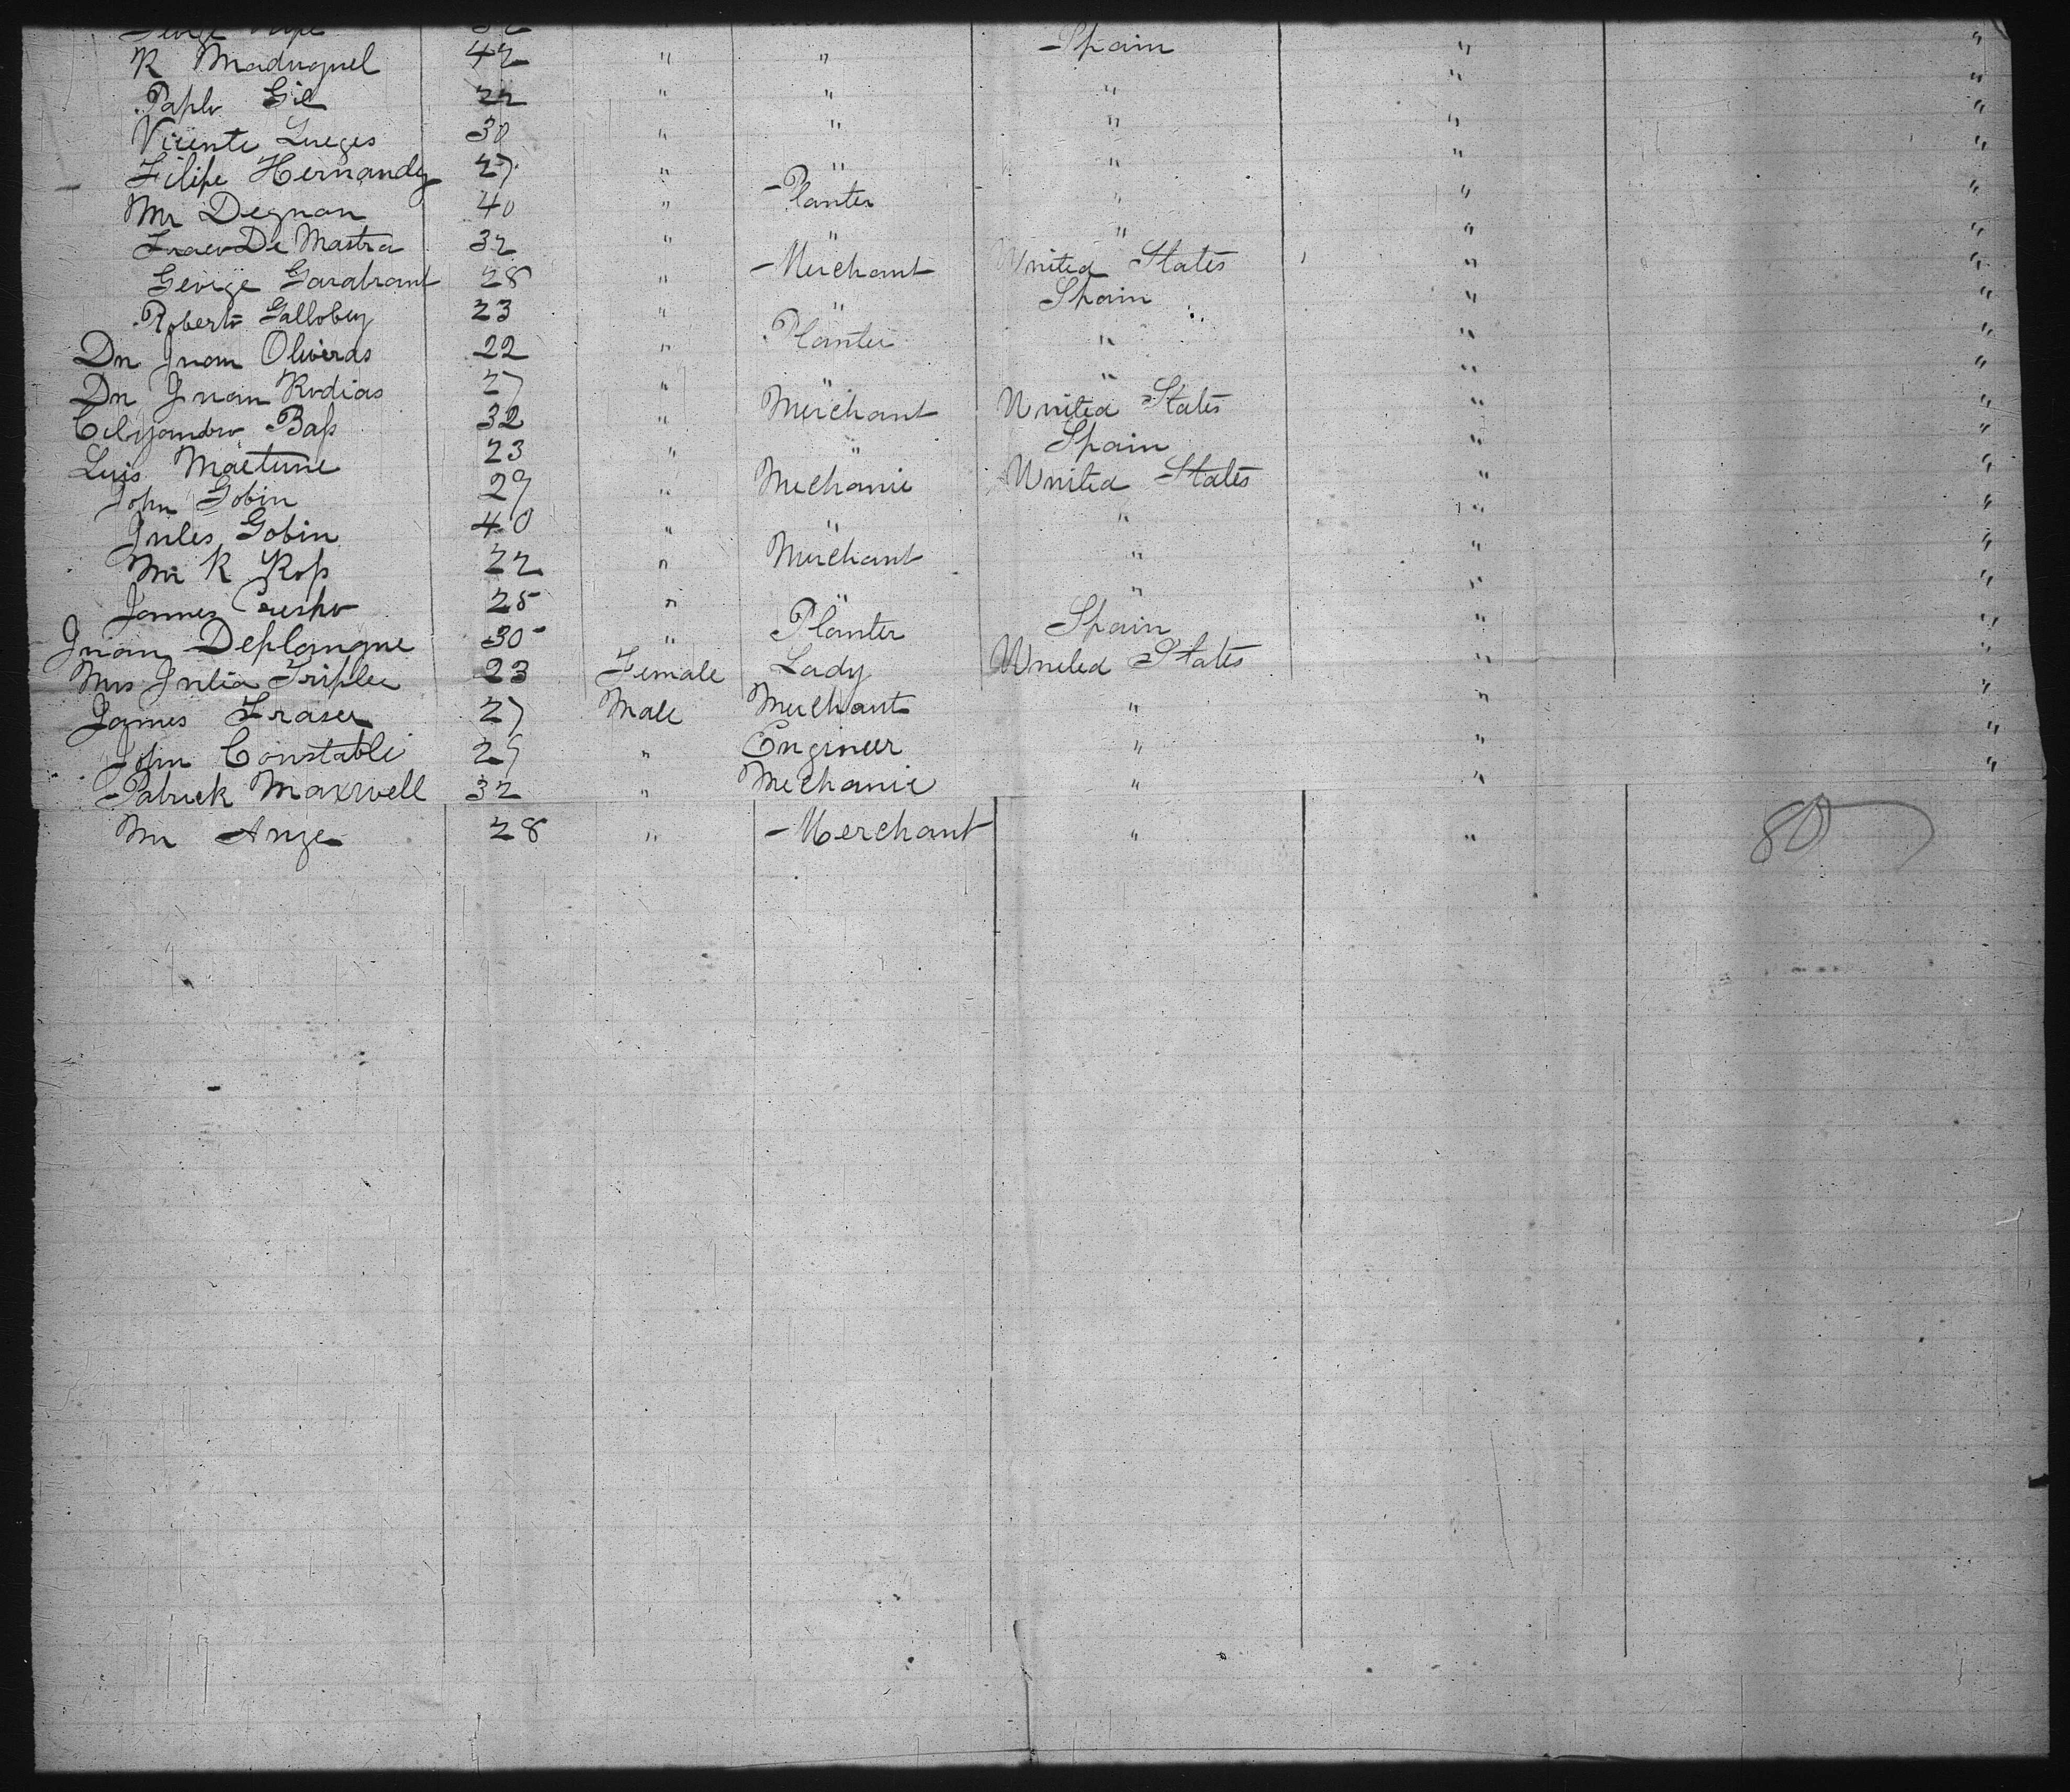 George 32
R Maduquel 42 " " Spain " "
Pablo Gil 22 " " " " "
Vicente Lueges 30 " " " " "
Filipe Hernandez 27 " " " " "
Mr Degnan 40 " Planter " " "
De Mastra 32 " " " " "
George Garabrant 28 " Merchant United States " "
Roberto Gallobey 23 " " Spain " "
Dn Juan Oliveras 22 " Planter " " "
Dn Juan Rodias 27 " " " " "
Bass 32 " Merchant United States " "
Luis Maetune 23 " " Spain " "
John Gobin 29 " Mechanic United States " "
Jules Gobin 40 " " " " "
Mr R Ross 22 " Merchant " " "
James Crespo 25 " " " " "
Juan Deplangue 30 " Planter Spain " "
Mrs Julia Triplee 23 Female Lady United States " "
James Fraser 27 Male Merchant " " "
John Constable 29 " Engineer " " "
Patrick Maxwell 32 " Mechanic " " "
Mr Ange 28 " Merchant " "
80